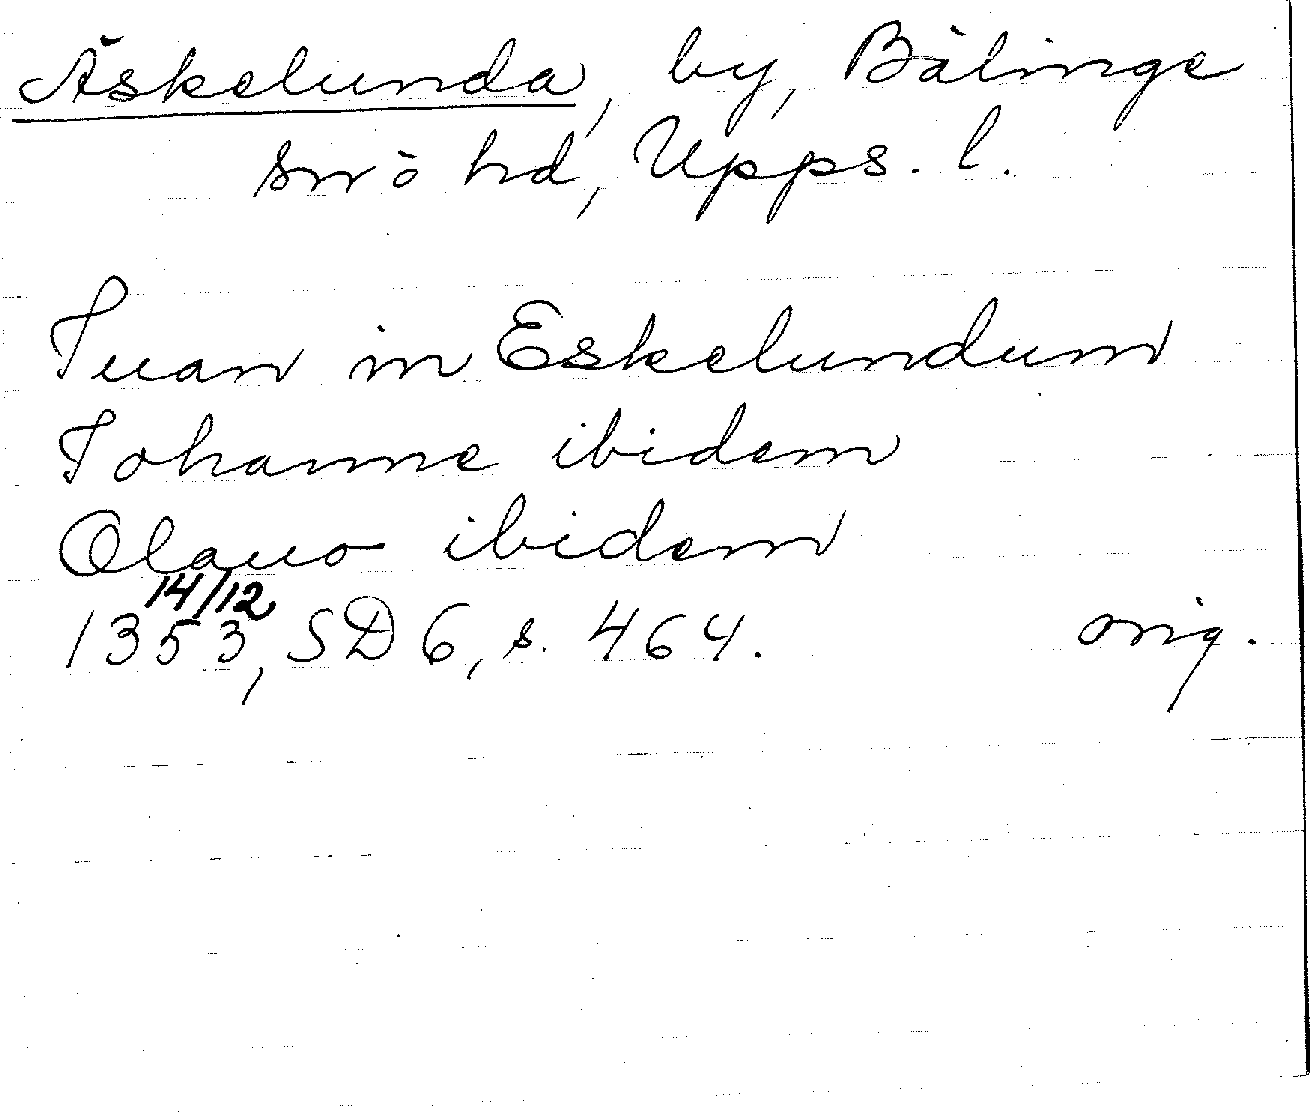 Äskelunda, by, Bälinge
sn o hd, Upps. l.
Iuan in Eskelundum
Iohanne ibidem
Olauo ibidem
14/12
1353, SD 6, s. 464. orig.